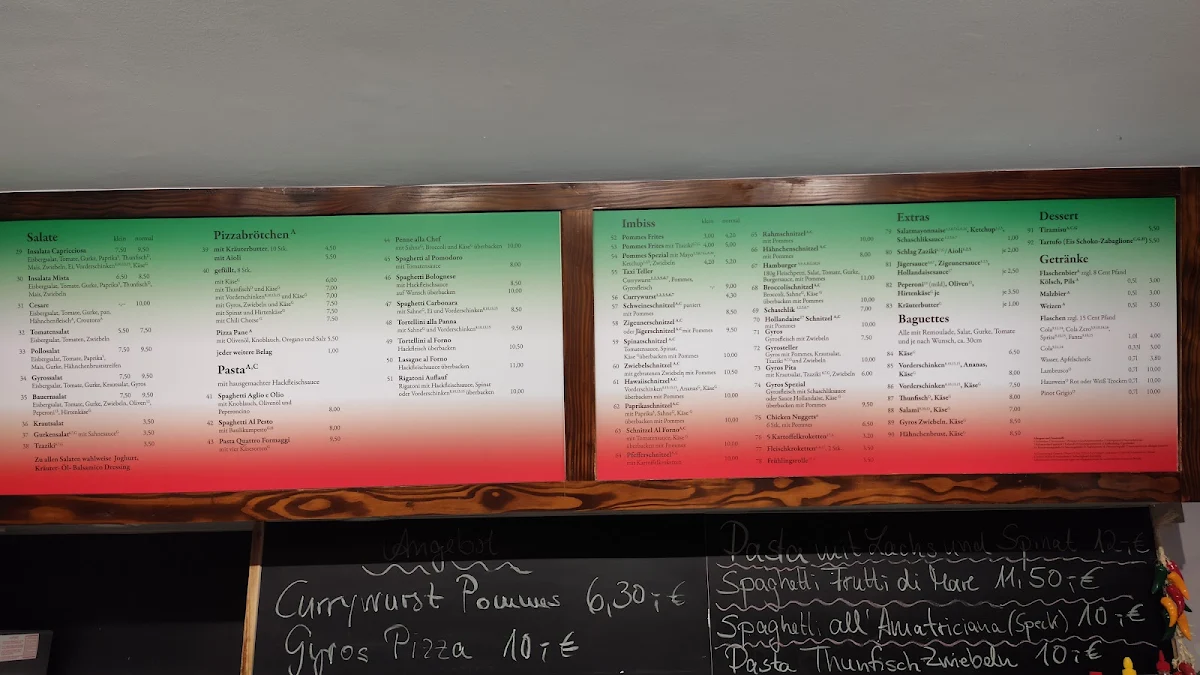 Salate
klein normal
29 Insalata Capricciosa 7,50 9,50
Eisbergsalat, Tomate, Gurke, Paprika, Thunfisch,
Mais, Zwiebeln, Ei, Vorderschinken, Käse
30 Insalata Mista 4,50 8,50
Eisbergsalat, Tomate, Gurke, Paprika, Thunfisch,
Mais, Zwiebeln
31 Cesare 10,00
Eisbergsalat, Tomate, Gurke, pan.
Hähnchenfleisch, Croutons
32 Tomatensalat 5,50 7,50
Eisbergsalat, Tomaten, Zwiebeln
33 Pollosalat 7,50 9,50
Eisbergsalat, Tomate, Paprika,
Mais, Gurke, Hähnchenbruststreifen
34 Gyrossalat 7,50 9,50
Eisbergsalat, Tomate, Gurke, Krautsalat, Gyros
35 Bauernsalat 7,50 9,50
Eisbergsalat, Tomate, Gurke, Zwiebeln, Oliven,
Peperoni, Hirtenkäse
36 Krautsalat 3,50
37 Gurkensalat mit Sahnesauce 3,50
38 Tzaziki 3,50
Zu allen Salaten wahlweise Joghurt,
Kräuter, Öl- Balsamico Dressing
Pizzabrötchen A
39 mit Kräuterbutter, 10 Stk. 4,50
mit Aioli 5,50
40 gefüllt, 8 Stk.
mit Käse 6,00
mit Thunfisch und Käse 7,00
mit Vorderschinken und Käse 7,00
mit Gyros, Zwiebeln und Käse 7,50
mit Spinat und Hirtenkäse 7,50
mit Chili Cheese 7,50
Pizza Pane A
mit Olivenöl, Knoblauch, Oregano und Salz 3,50
jeder weitere Belag 1,00
Pasta A,C
mit hausgemachter Hackfleischsauce
41 Spaghetti Aglio e Olio
mit Knoblauch, Olivenöl und
Peperoncino 8,00
42 Spaghetti Al Pesto
mit Basilikumpesto 8,00
43 Pasta Quattro Formaggi 9,50
mit vier Käsesorten
44 Penne alla Chef
mit Sahne, Broccoli und Käse überbacken 10,00
45 Spaghetti al Pomodoro
mit Tomatensauce 8,00
46 Spaghetti Bolognese
mit Hackfleischsauce 8,50
auf Wunsch überbacken 10,00
47 Spaghetti Carbonara
mit Sahne, Ei und Vorderschinken 9,50
48 Tortellini alla Panna
mit Sahne und Vorderschinken 9,50
49 Tortellini al Forno
Hackfleisch überbacken 10,50
50 Lasagne al Forno
Hackfleisch überbacken 11,00
51 Rigatoni Auflauf
mit Hackfleischsauce, Spinat
oder Vorderschinken überbacken 10,50
Imbiss
klein normal
52 Pommes Frites 3,00 4,20
53 Pommes Frites mit Tzaziki 4,00 5,00
54 Pommes Spezial mit Mayo,
Ketchup, Zwiebeln 4,20 5,20
55 Taxi Teller
Currywurst, Pommes,
Gyrosfleisch 9,00
56 Currywurst 4,30
57 Schweineschnitzel paniert
mit Pommes 8,50
58 Zigeunerschnitzel
oder Jägerschnitzel mit Pommes 9,50
59 Spinatschnitzel
Tomatensauce, Spinat,
Käse überbacken mit Pommes 10,00
60 Zwiebelschnitzel
mit gebratenen Zwiebeln mit Pommes 10,50
61 Hawaiischnitzel
Vorderschinken, Ananas, Käse
überbacken mit Pommes 10,00
62 Paprikaschnitzel
mit Paprika, Sahne, Käse
überbacken mit Pommes 10,00
63 Schnitzel Al Forno
mit Tomatensauce, Käse
überbacken mit Pommes 10,00
64 Pfefferschnitzel
mit Kartoffelkroketten 10,00
65 Rahmschnitzel
mit Pommes 10,00
66 Hähnchenschnitzel
mit Pommes 8,00
67 Hamburger
180g Fleischpatty, Salat, Tomate, Gurke,
Burgersauce, mit Pommes 11,00
68 Broccolischnitzel
Broccoli, Sahne, Käse
überbacken mit Pommes 10,00
69 Schaschlik 7,00
70 Hollandaise Schnitzel
mit Pommes 10,00
71 Gyros
Gyrosfleisch mit Zwiebeln 7,50
72 Gyrosteller
Gyros mit Pommes, Krautsalat,
Tzaziki und Zwiebeln 10,00
73 Gyros Pita
mit Krautsalat, Tzaziki, Zwiebeln 6,00
74 Gyros Spezial
Gyrosfleisch mit Schaschliksauce
oder Sauce Hollandaise, Käse
überbacken mit Pommes 9,50
75 Chicken Nuggets
6 Stk. mit Pommes 6,50
76 5 Kartoffelkroketten 3,20
77 Fleischkroketten, 2 Stk. 3,50
78 Frühlingsrolle 3,50
Extras
79 Salatmayonnaise, Ketchup,
Schaschliksauce 1,00
80 Schlag Zaziki, Aioli je 2,00
81 Jägersauce, Zigeunersauce,
Hollandaisesauce je 2,50
82 Peperoni (mild), Oliven,
Hirtenkäse je je 3,50
83 Kräuterbutter je 1,00
Baguettes
Alle mit Remoulade, Salat, Gurke, Tomate
und je nach Wunsch, ca. 30cm
84 Käse 6,50
85 Vorderschinken, Ananas,
Käse 8,00
86 Vorderschinken, Käse 7,50
87 Thunfisch, Käse 8,00
88 Salami, Käse 7,00
89 Gyros Zwiebeln, Käse 8,50
90 Hähnchenbrust, Käse 8,50
Dessert
91 Tiramisu 5,50
92 Tartufo (Eis Schoko-Zabaglione) 5,50
Getränke
Flaschenbier zzgl. 8 Cent Pfand
Kölsch, Pils 0,5l 3,00
Malzbier 0,5l 3,00
Weizen 0,5l 3,50
Flaschen zzgl. 15 Cent Pfand
Cola, Cola Zero,
Sprite, Fanta 1,0l 4,00
Cola 0,33l 3,00
Wasser, Apfelschorle 0,7l 3,80
Lambrusco 0,7l 10,00
Hauswein Rot oder Weiß Trocken 0,7l 10,00
Pinot Grigio 0,7l 10,00
Angebot
Currywurst Pommes 6,30,-€
Gyros Pizza 10,-€
Pasta mit Lachs und Spinat 12,-€
Spaghetti Frutti di Mare 11,50,-€
Spaghetti all'Amatriciana (Speck) 10,-€
Pasta Thunfisch Zwiebeln 10,-€